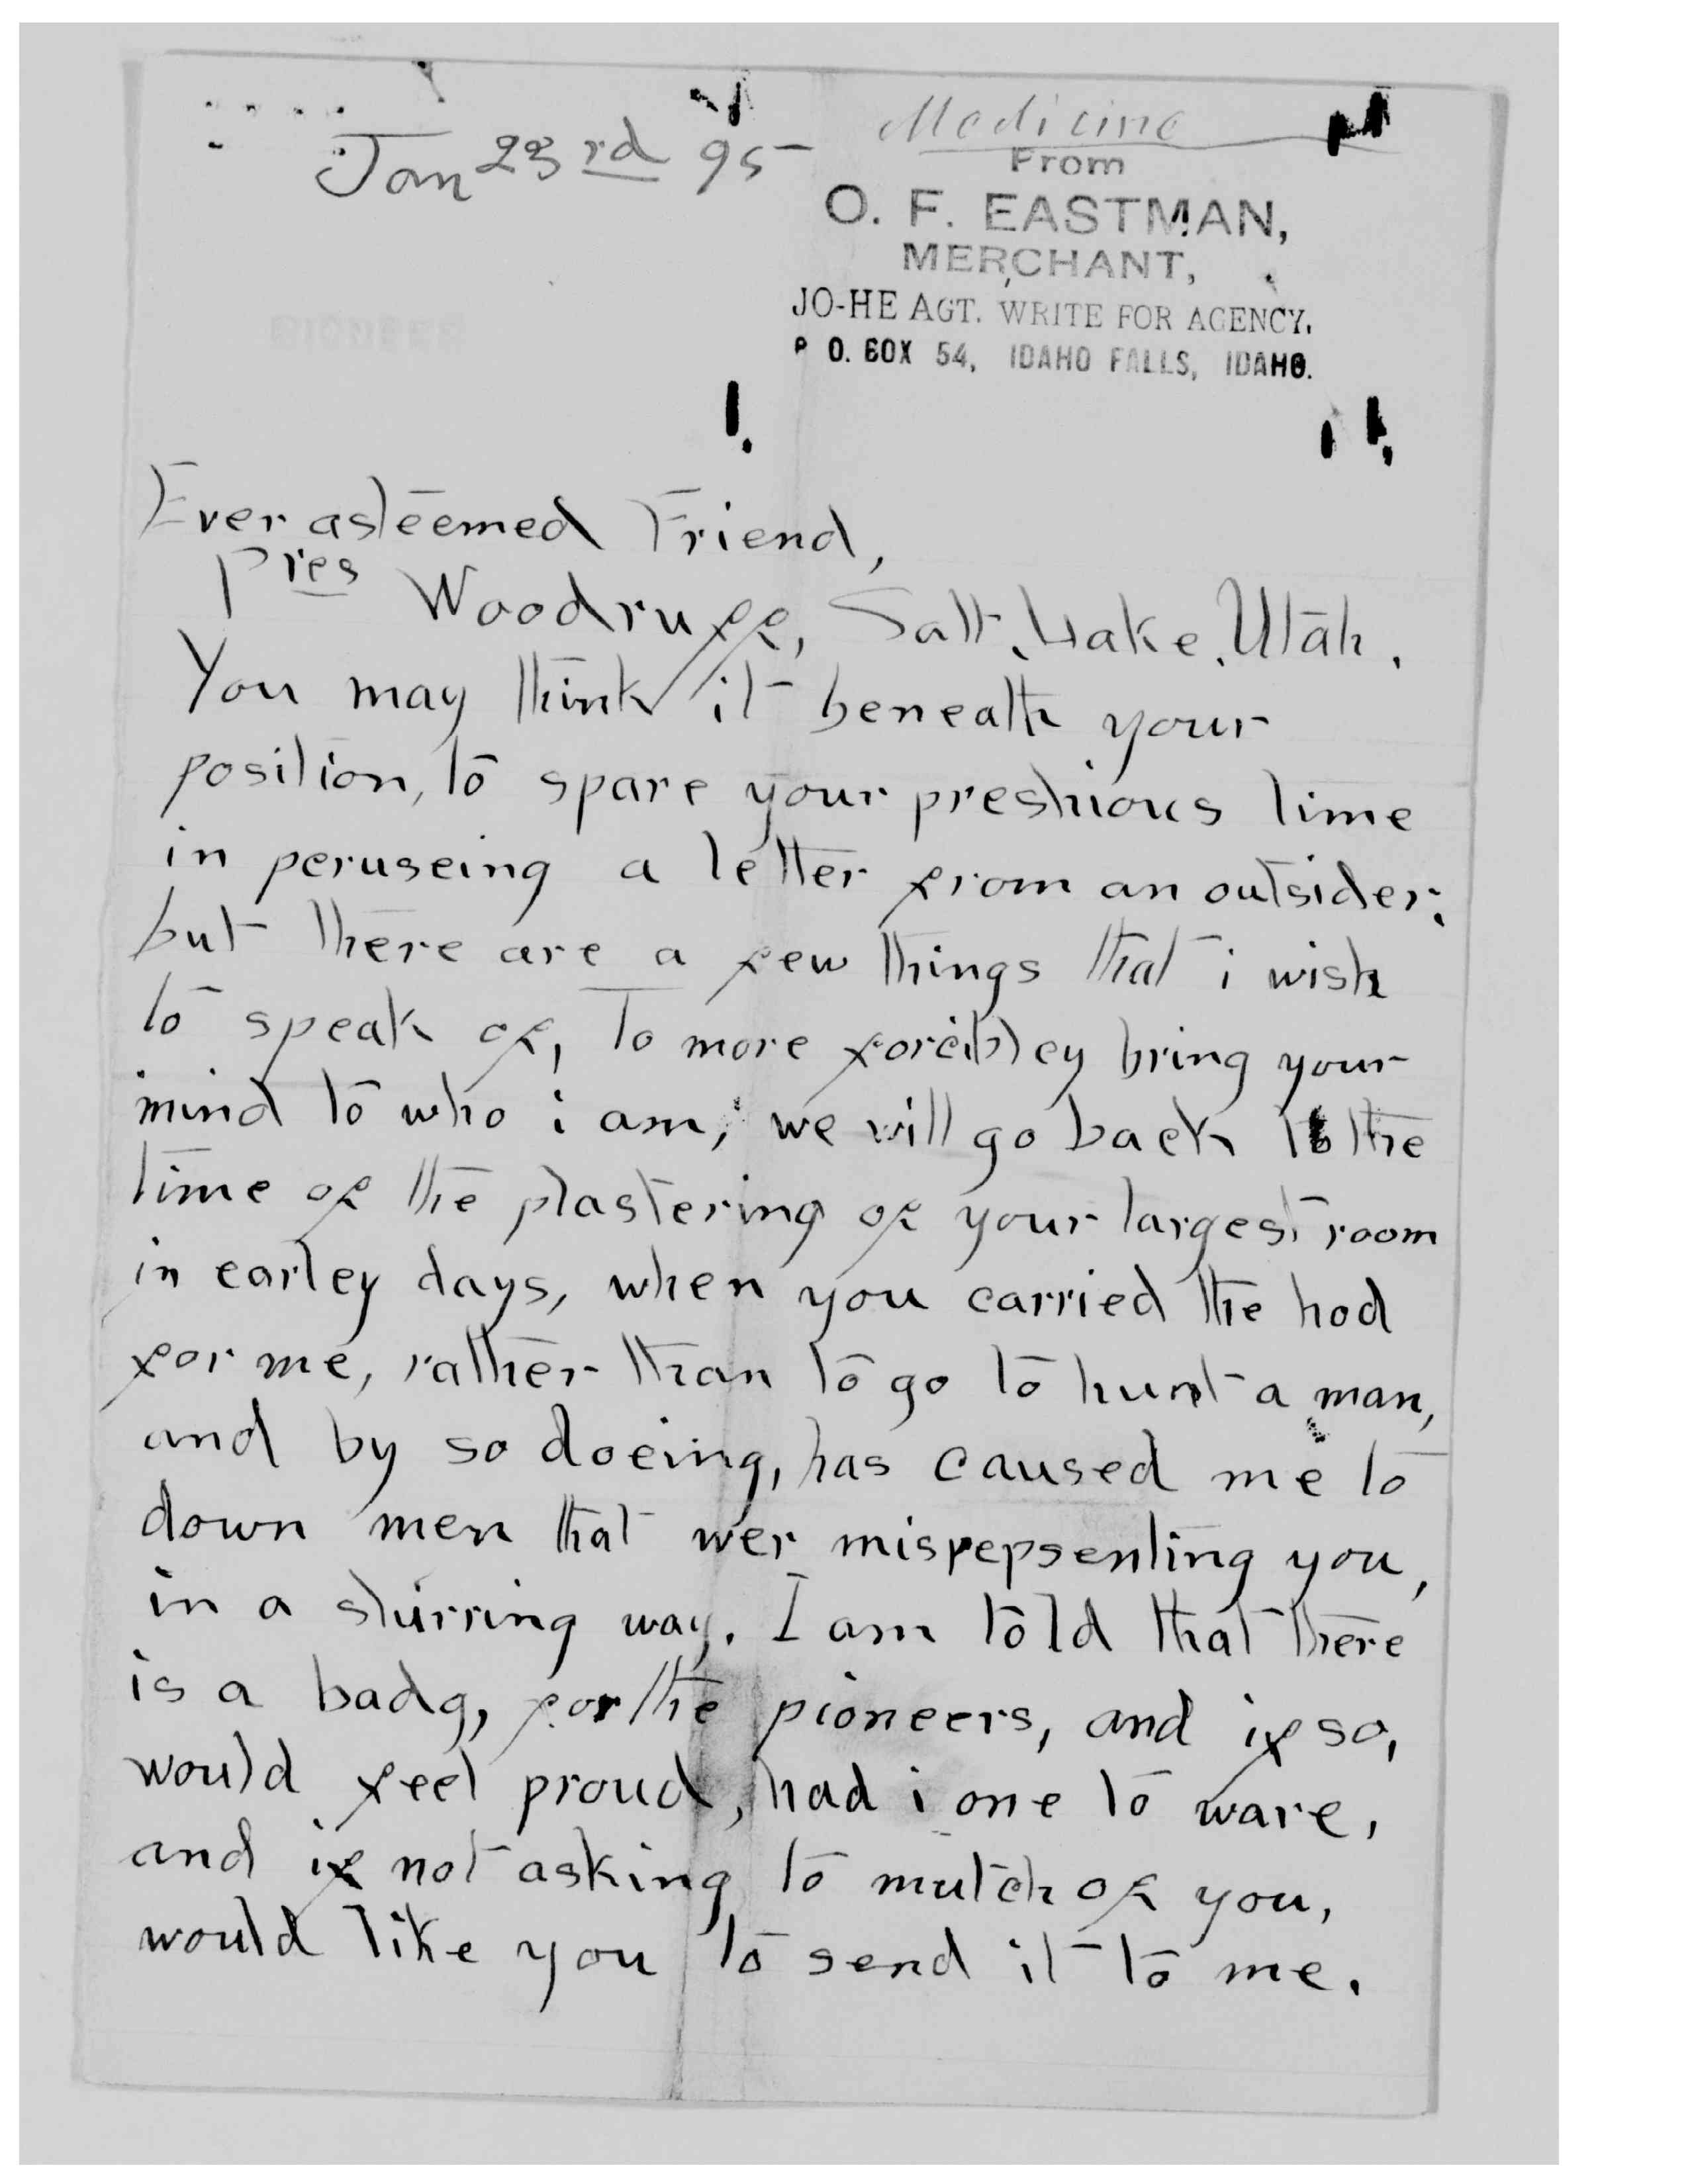 Medicine
Jan 23rd 95
From
O. F. EASTMAN,
MERCHANT,
JO-HE AGT. WRITE FOR AGENCY.
P O. BOX 54, IDAHO FALLS, IDAHO.
Ever asteemed Friend,
Pres Woodruff, Salt Lake, Utah.
You may think it beneath your
position, to spare your preshious time
in peruseing a letter from an outsider;
but there are a few things that i wish
to speak of, To more forcibley bring your
mind to who i am, we will go back to the
time of the plastering of your largest room
in earley days, when you carried the hod
for me, rather than to go to hunt a man,
and by so doeing, has caused me to
down men that wer mispepsenting you,
in a slurring way. I am told that there
is a badg, for the pioneers, and if so,
would feel proud, had i one to ware,
and if not asking to mutch of you,
would like you to send it to me.